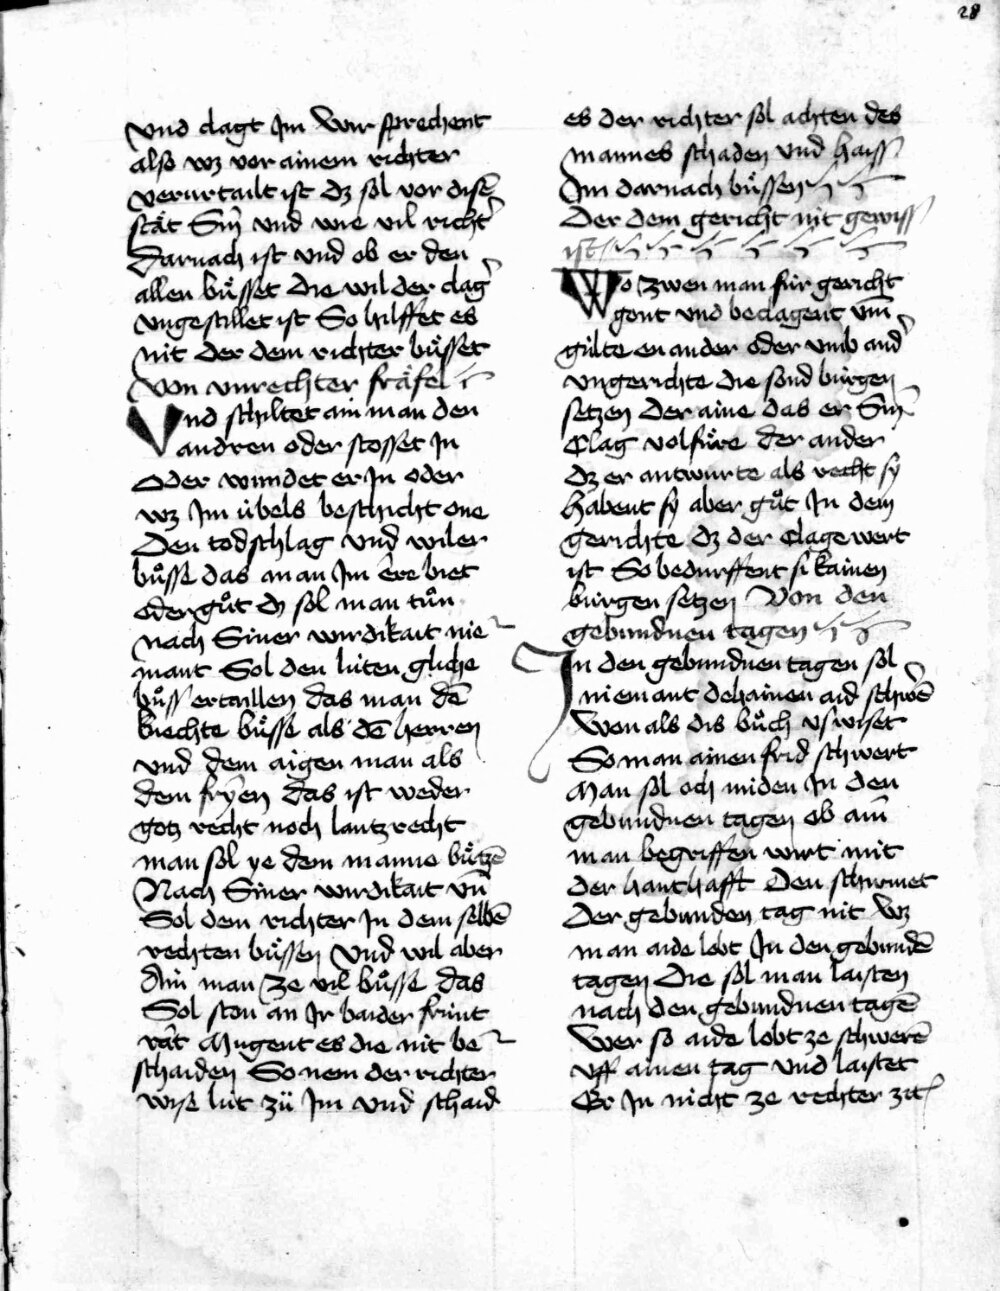 28
vnd clagt Im Wir sprechent
also wz vor ainem richter
verurtailt ist dz sol vor disē
stät Sin̄ vnd wie vil richt͛
Darnach ist vnd ob er den
allen bůsset die wil der clag͛
vngestillet ist So hilffet es
nit der dem richter bůsset
Von vnrechter fräfel
Vnd schiltet ain man den
andren oder stosset In
Oder wundet er In oder
wz Im übels beschicht one
Den todschlag vnd wil er
bůsse das man Im Ere biet
oder gůt dz sol man tůn
nach Siner wirdikait nie
mant Sol den lüten gliche
bůss ertaillen das man dē
knechte bůsse als dē herren
vnd dem aigen man als
dem fryen das ist weder
gotz recht noch lantzrecht
man sol ye dem manne bůtzē
Nach Siner wirdikait vn̄
Sol dem richter In dem selbē
rechten bůssen Vnd wil aber
Ain man ze vil bůsse das
Sol ston an Ir baider frünt
rät Mugent es die nit be
schaiden So nem der richter
wise lüt zü Im vnd schaid
es der richter sol achten des
mannes schaden vnd haiss
Im darnach bůssen
Der dem gericht nit gewiss
ist
Wo zwen man für gericht
gont vnd beclagent vm̄
gülte en ander oder vmb and͛
vngerichte die sond bürgen
setzen Der aine das er Sin̄
Clag volfüre der ander
dz er antwurte als recht sy
Habent sy aber gůt In dem
gerichte dz der Clage wert
ist So bedurffent si kainen
burgen setzen Von den
gebundnen tagen
In den gebundnen tagen sol
niemant dehainen aid schwerē
Won als dis bůch vswiset
So man ainen frid schwert
Man sol och miden In den
gebundnen tagen ob ain̄
man begriffen wirt mit
der hanthafft Den schirmet
Der gebunden tag nit Wz
man aide lobt In den gebundē
tagen Die sol man laisten
nach den gebundnen tagē
Wer so aide lobt ze schwerē
vff ainen tag vnd laistet
Er In nicht ze rechter zit